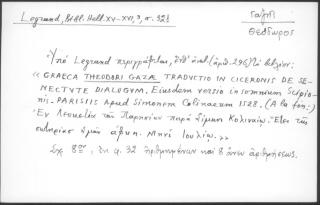 Legrand, Bibl. Hell. XV-XVI, 3, σ. 321
Γαζῆς
Θεόδωρος
Ὑπὸ Legrand περιγράφεται, ὑπ' ἀριθ. (ἀριθ. 296) τὸ βιβλίον:
« GRAECA THEODORI GAZAE TRADUCTIO IN CICERONIS DE SE-
NECTUTE DIALOGUM. Eiusdem versio in somnium Scipio-
nis. PARISIIS Apud Simonem Colinaeum 1528. (A la fin:)
Ἐν Λευκετίᾳ τῶν Παρησίων παρὰ Σίμωνι Κολιναίῳ. Ἔτει τῆς
σωτηρίας ἡμῶν αφκη. Μηνὶ Ἰουλίῳ. »
Σχ. 8ον, ἐκ φ. 32 ἠριθμημένων καὶ 8 ἄνευ ἀριθμήσεως.